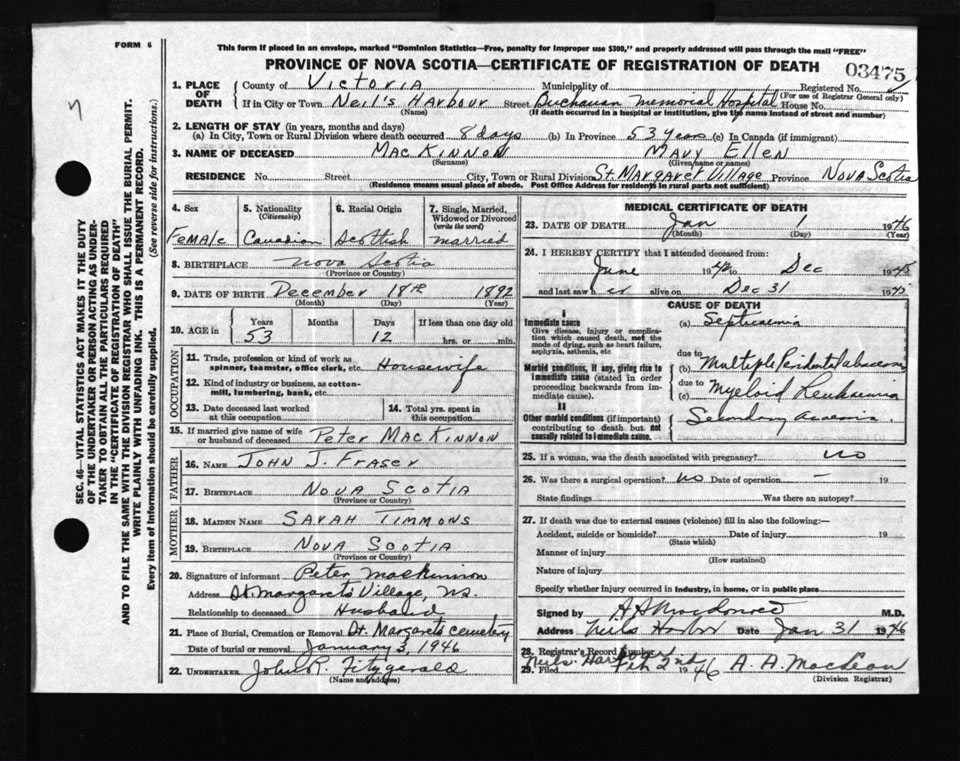 FORM 6
This form if placed in an envelope, marked "Dominion Statistics—Free, penalty for improper use $300," and properly addressed will pass through the mail "FREE"
PROVINCE OF NOVA SCOTIA—CERTIFICATE OF REGISTRATION OF DEATH
03475
1. PLACE OF DEATH
County of Victoria Municipality of Registered No.
(For use of Registrar General only)
If in City or Town Neil's Harbour Street Buchanan Memorial Hospital House No.
(Name) (If death occurred in a hospital or institution, give the name instead of street and number)
2. LENGTH OF STAY (in years, months and days)
(a) In City, Town or Rural Division where death occurred 8 days (b) In Province 53 years (c) In Canada (if immigrant)
3. NAME OF DECEASED MacKinnon Mary Ellen
(Surname) (Given name or names)
RESIDENCE No. Street City, Town or Rural Division St. Margaret Village Province Nova Scotia
(Residence means usual place of abode. Post Office Address for residents in rural parts not sufficient)
4. Sex Female
5. Nationality (Citizenship) Canadian
6. Racial Origin Scottish
7. Single, Married, Widowed or Divorced (write the word) married
8. BIRTHPLACE Nova Scotia
(Province or Country)
9. DATE OF BIRTH December 18th 1892
(Month) (Day) (Year)
10. AGE in Years 53 Months Days 12 If less than one day old hrs. or min.
OCCUPATION
11. Trade, profession or kind of work as spinner, teamster, office clerk, etc. Housewife
12. Kind of industry or business, as cotton-mill, lumbering, bank, etc.
13. Date deceased last worked at this occupation
14. Total yrs. spent in this occupation
15. If married give name of wife or husband of deceased Peter MacKinnon
FATHER
16. NAME John J. Fraser
17. BIRTHPLACE Nova Scotia
(Province or Country)
MOTHER
18. MAIDEN NAME Sarah Timmons
19. BIRTHPLACE Nova Scotia
(Province or Country)
20. Signature of informant Peter MacKinnon
Address St. Margarets Village, N.S.
Relationship to deceased Husband
21. Place of Burial, Cremation or Removal St. Margarets Cemetery
Date of burial or removal January 3, 1946
22. UNDERTAKER John R. Fitzgerald
(Name and address)
MEDICAL CERTIFICATE OF DEATH
23. DATE OF DEATH Jan 1 1946
(Month) (Day) (Year)
24. I HEREBY CERTIFY that I attended deceased from:
June 19 to Dec 1945
and last saw her alive on Dec 31 1945
CAUSE OF DEATH
I
Immediate cause
Give disease, injury or complication which caused death, not the mode of dying, such as heart failure, asphyxia, asthenia, etc
(a) Septicaemia
due to
Morbid conditions, if any, giving rise to immediate cause (stated in order proceeding backwards from immediate cause).
(b) Multiple abscesses
due to
(c) Myeloid Leukaemia
II
Other morbid conditions (if important) contributing to death but not causally related to immediate cause.
Secondary anaemia.
25. If a woman, was the death associated with pregnancy? no
26. Was there a surgical operation? no Date of operation — 19
State findings Was there an autopsy?
27. If death was due to external causes (violence) fill in also the following:—
Accident, suicide or homicide? Date of injury 19
(State which)
Manner of injury
(How sustained)
Nature of injury
Specify whether injury occurred in industry, in home, or in public place
Signed by M.D.
Address Neils Harbor Date Jan 31 1946
28. Registrar's Record Number
Neils Harbour
29. Filed Feb 2nd 1946 A. A. MacLean
(Division Registrar)
SEC. 46—VITAL STATISTICS ACT MAKES IT THE DUTY
OF THE UNDERTAKER OR PERSON ACTING AS UNDER-
TAKER TO OBTAIN ALL THE PARTICULARS REQUIRED
IN THE "CERTIFICATE OF REGISTRATION OF DEATH"
AND TO FILE THE SAME WITH THE DIVISION REGISTRAR WHO SHALL ISSUE THE BURIAL PERMIT.
WRITE PLAINLY WITH UNFADING INK. THIS IS A PERMANENT RECORD.
Every item of Information should be carefully supplied. (See reverse side for instructions.)